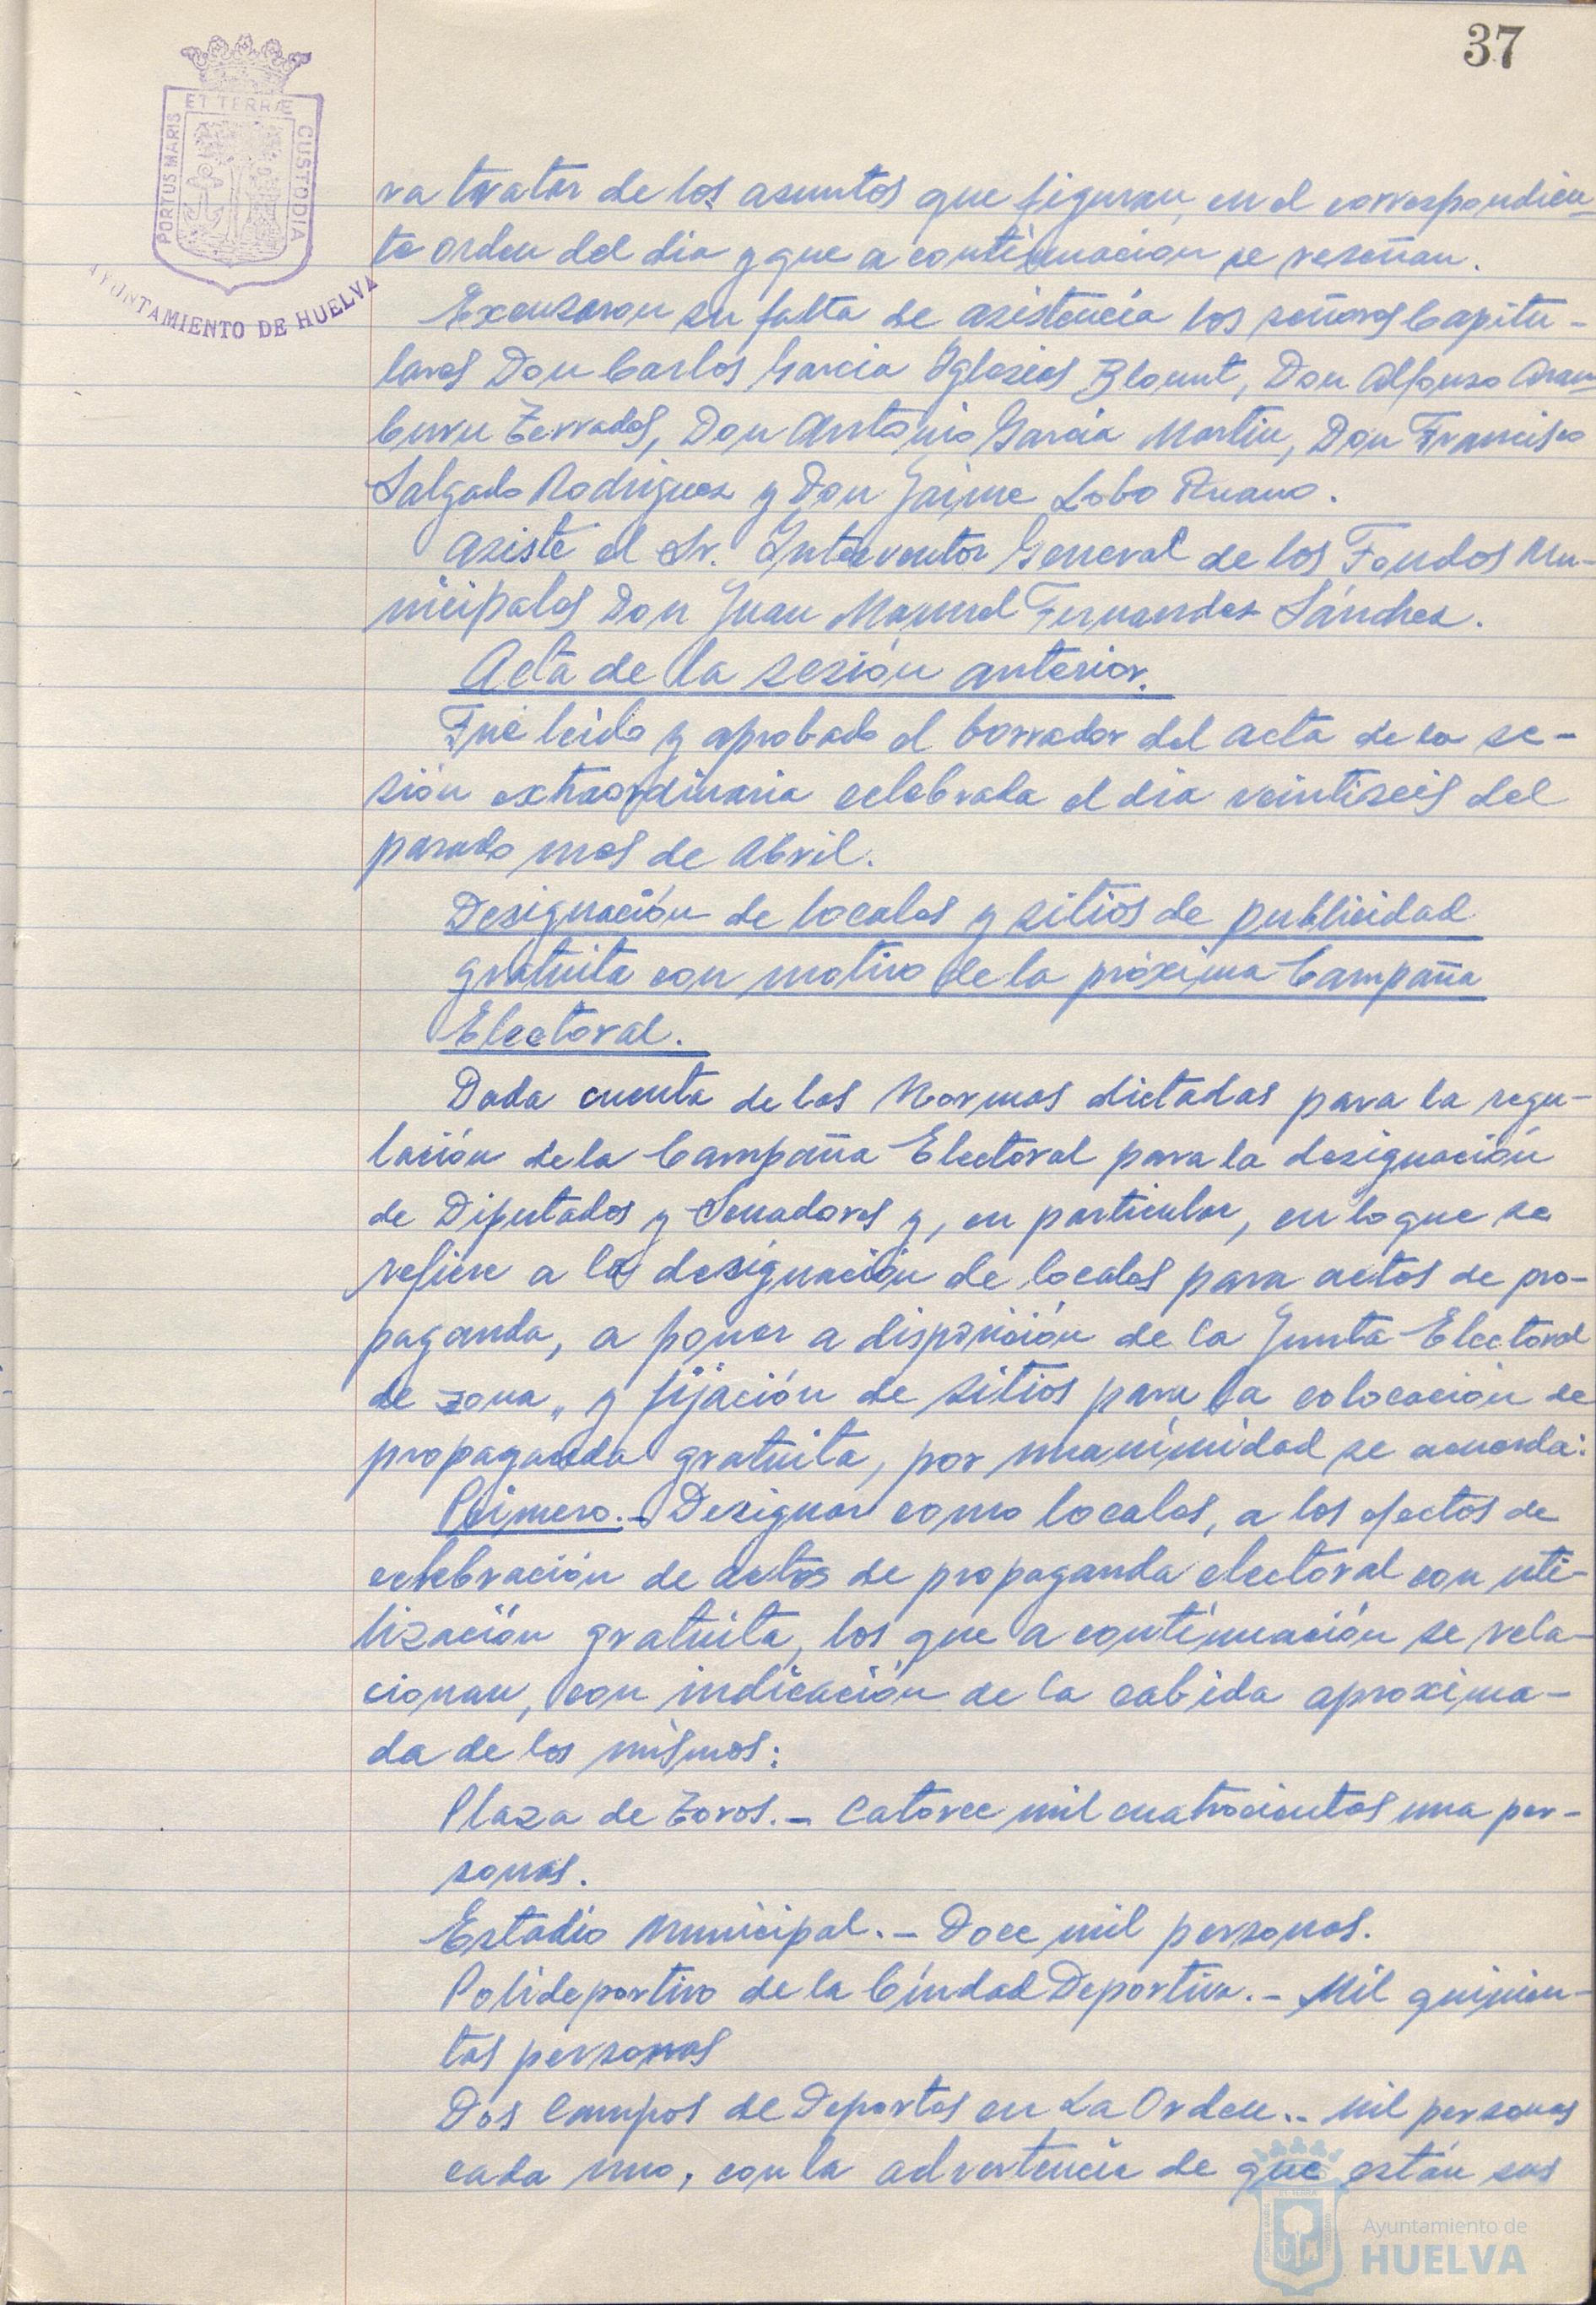 37
PORTUS MARIS ET TERRÆ CUSTODIA
AYUNTAMIENTO DE HUELVA
ra tratar de los asuntos que figuran en el correspondien-
te orden del dia y que a continuacion se reseñan.
Excusaron su falta de asistencia los señores Capitu-
lares Don Carlos Garcia Iglesias Blount, Don Alfonso Aram
buru Terrades, Don Antonio Garcia Martin, Don Francisco
Salgado Rodriguez y Don Jaime Lobo Ruano.
Asiste el Sr. Interventor General de los Fondos Mu-
nicipales Don Juan Manuel Fernandez Sánchez.
Acta de la sesión anterior.
Fué leido y aprobado el borrador del acta de la se-
sión extraordinaria celebrada el dia veintiseis del
pasado mes de Abril.
Designación de locales y sitios de publicidad
gratuita con motivo de la próxima Campaña
Electoral.
Dada cuenta de las Normas dictadas para la regu-
lación de la Campaña Electoral para la designación
de Diputados y Senadores y, en particular, en lo que se
refiere a la designación de locales para actos de pro-
paganda, a poner a disposición de la Junta Electoral
de zona, y fijación de sitios para la colocación de
propaganda gratuita, por unanimidad se acuerda:
Primero.- Designar como locales, a los efectos de
celebración de actos de propaganda electoral con uti-
lización gratuita, los que a continuación se rela-
cionan, con indicación de la cabida aproxima-
da de los mismos:
Plaza de Toros.- Catorce mil cuatrocientas una per-
sonas.
Estadio Municipal.- Doce mil personas.
Polideportivo de la Ciudad Deportiva.- Mil quinien-
tas personas
Dos Campos de Deportes en La Orden.- mil personas
cada uno, con la advertencia de que están sus
Ayuntamiento de
HUELVA